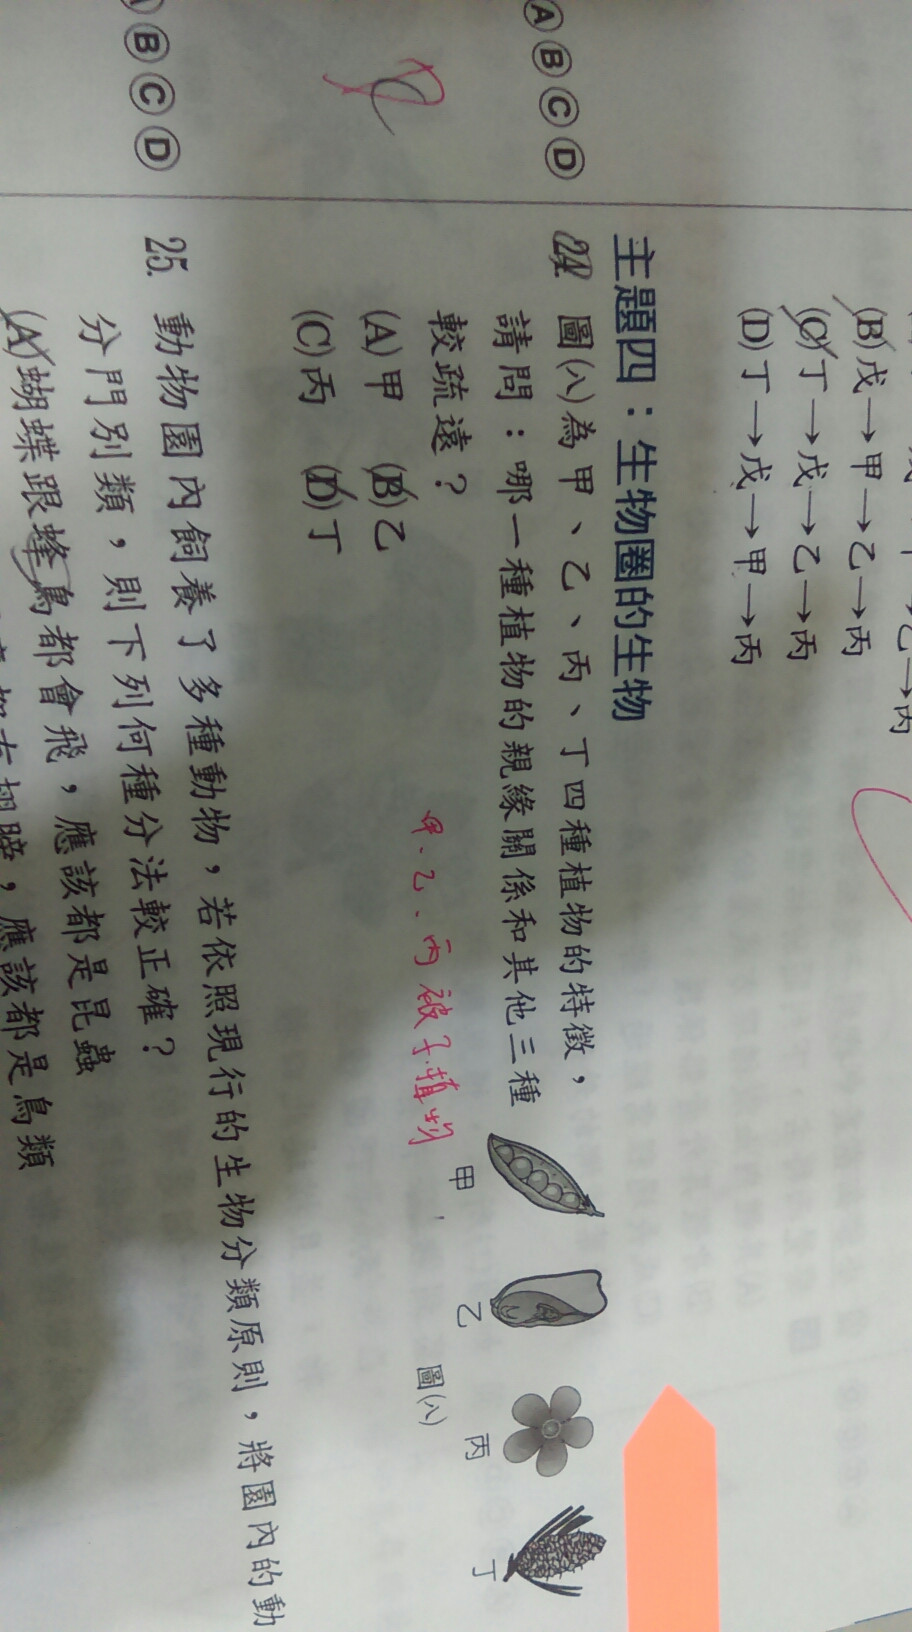 乙→丙
(B)戊→甲→乙→丙
(C)丁→戊→乙→丙
(D)丁→戊→甲→丙
主題四：生物圈的生物
24. 圖(八)為甲、乙、丙、丁四種植物的特徵，
請問：哪一種植物的親緣關係和其他三種
較疏遠？
(A)甲 (B)乙
(C)丙 (D)丁
甲、乙、丙被子植物
甲 乙 丙 丁
圖(八)
25. 動物園內飼養了多種動物，若依照現行的生物分類原則，將園內的動
分門別類，則下列何種分法較正確？
(A)蝴蝶跟蜂鳥都會飛，應該都是昆蟲
都有翅膀，應該都是鳥類
A B C D
B C D